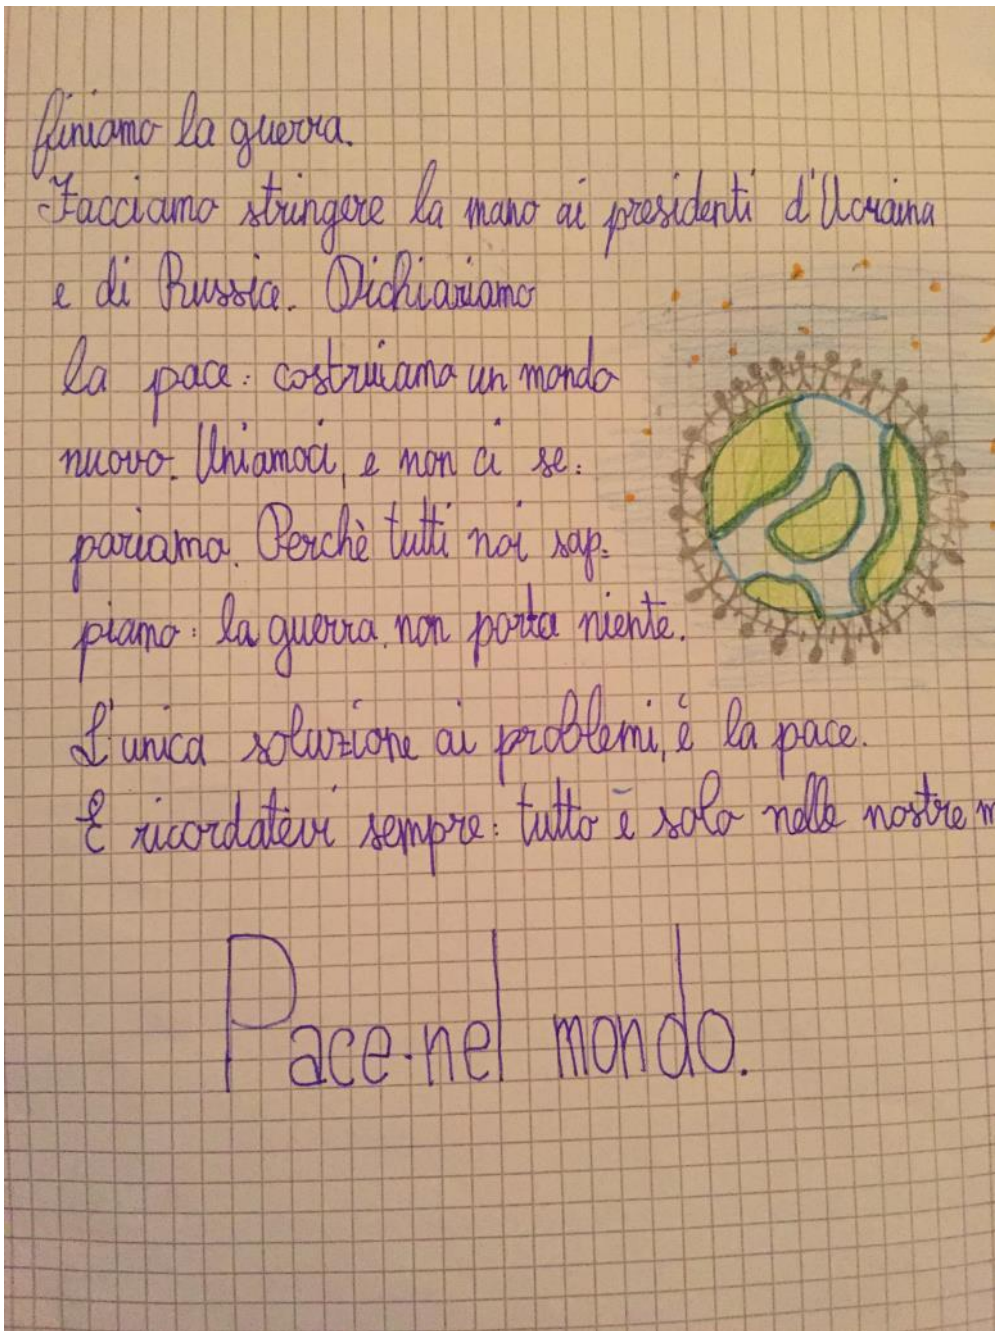 finiamo la guerra.
Facciamo stringere la mano ai presidenti d'Ucraina
e di Russia. Dichiariamo
la pace: costruiamo un mondo
nuovo. Uniamoci, e non ci se:
pariamo. Perchè tutti noi sap:
piamo: la guerra non porta niente.
L'unica soluzione ai problemi, è la pace.
E ricordatevi sempre: tutto è solo nelle nostre m
Pace nel mondo.